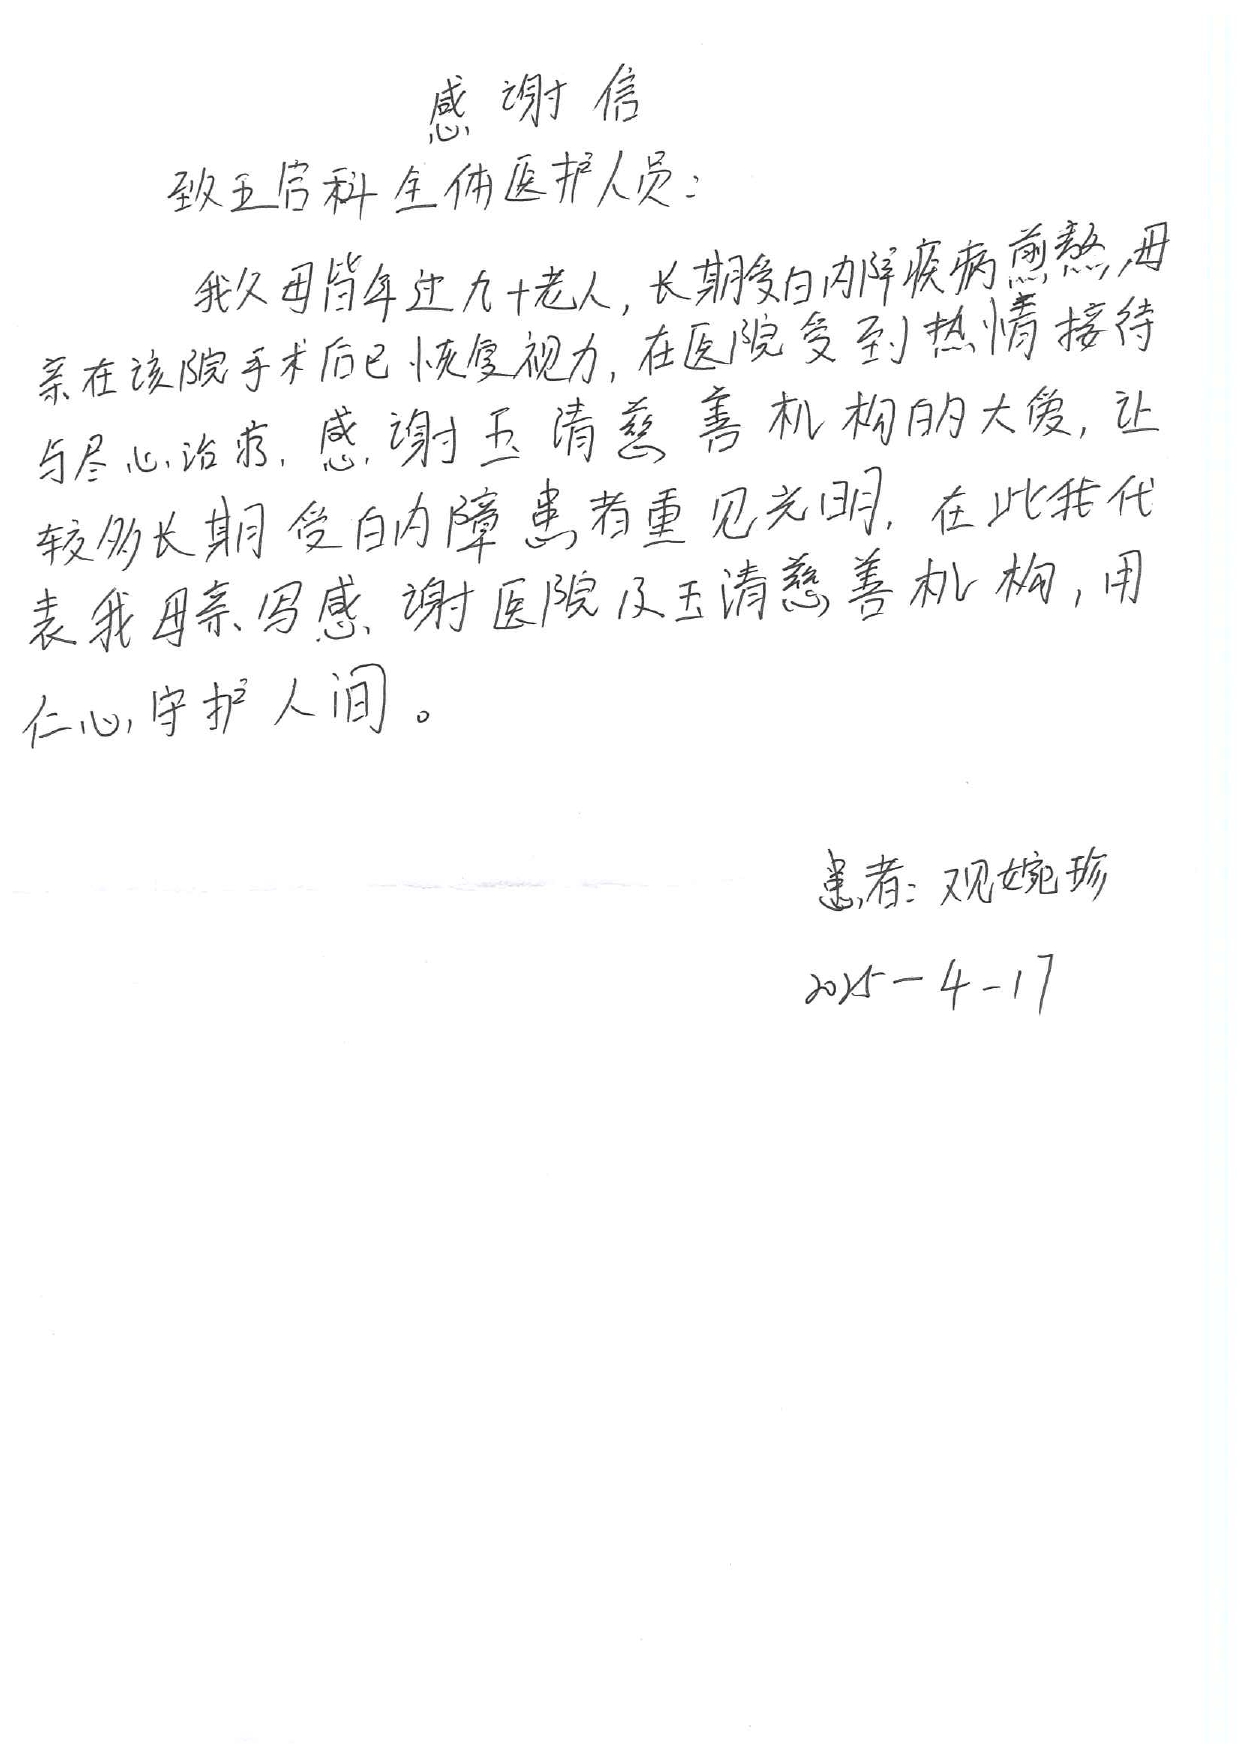 感谢信
致五官科全体医护人员：
我父母皆年过九十老人，长期受白内障疾病煎熬，母
亲在该院手术后已恢复视力，在医院受到热情接待
与尽心治疗，感谢玉清慈善机构的大爱，让
较多长期受白内障患者重见光明，在此我代
表我母亲写感谢医院及玉清慈善机构，用
仁心守护人间。
患者：观婉珍
2025-4-17